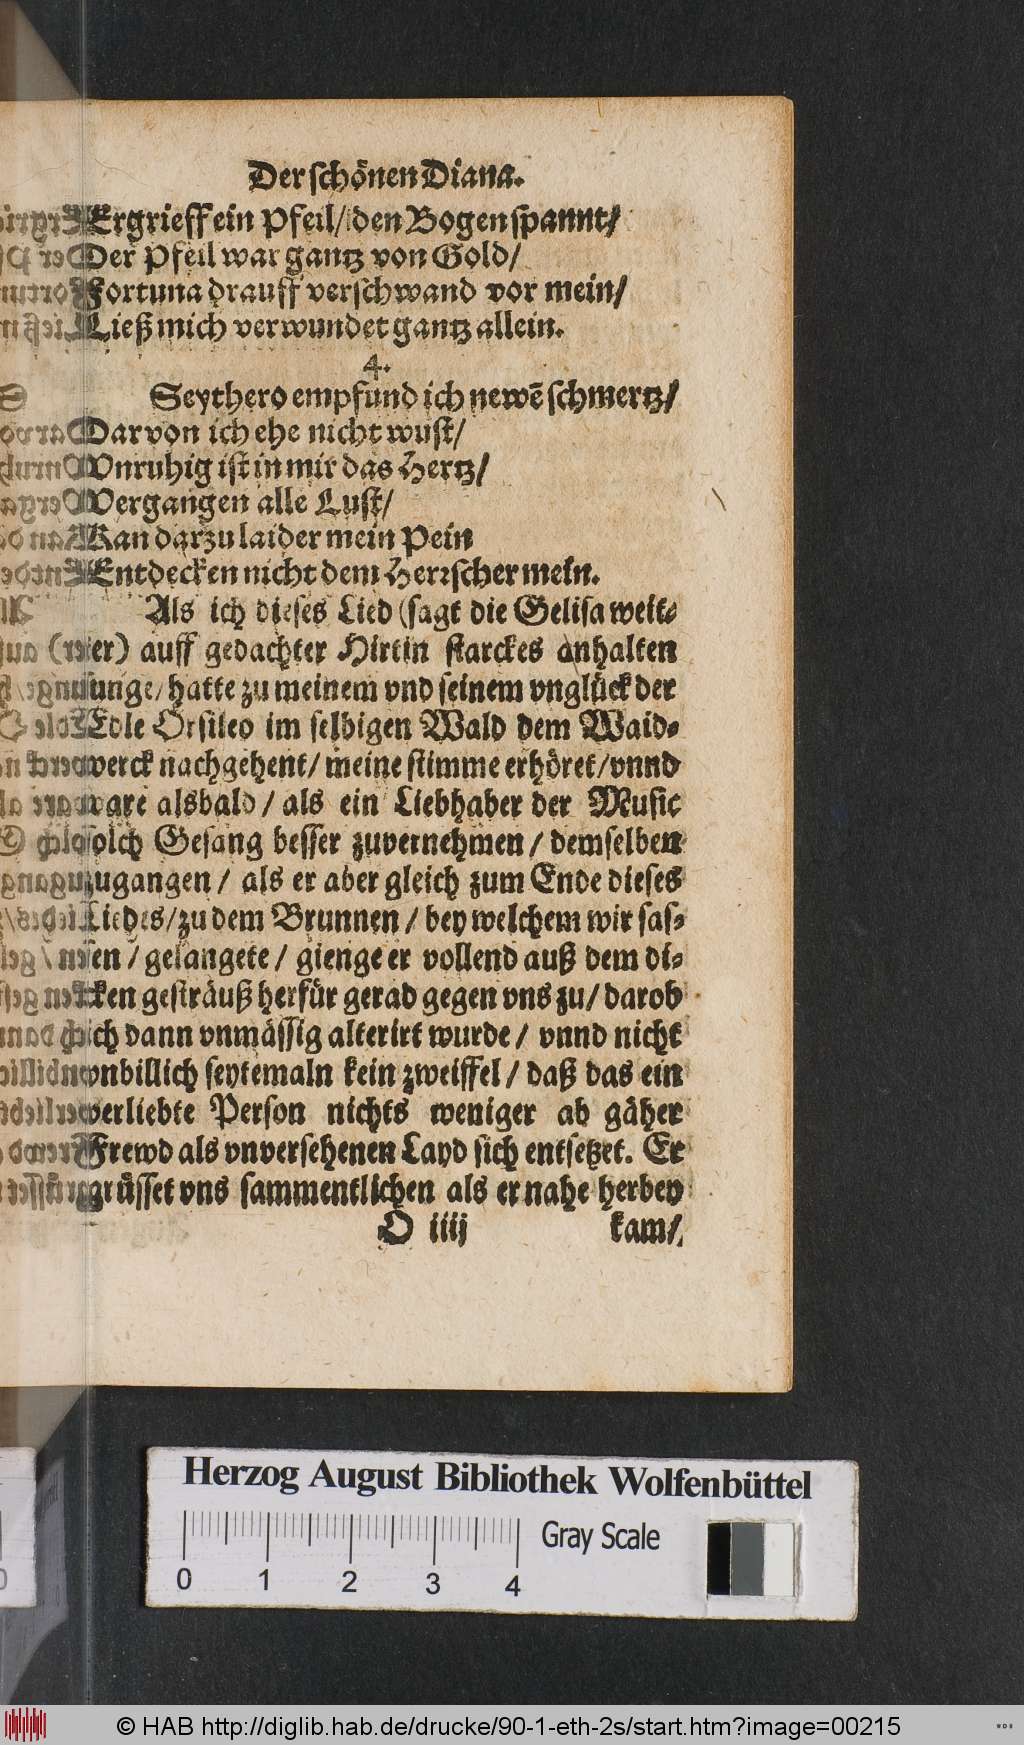 Der schönen Diana.
Ergrieff ein Pfeil/ den Bogen spannt/
Der Pfeil war gantz von Gold/
Fortuna drauff verschwand vor mein/
Ließ mich verwundet gantz allein.
4.
Seythero empfund ich newē schmertz/
Darvon ich ehe nicht wust/
Vnruhig ist in mir das Hertz/
Vergangen alle Lust/
Kan darzu laider mein Pein
Entdecken nicht dem Herrscher mein.
Als ich dieses Lied (sagt die Gelisa weit-
er) auff gedachter Hirtin starckes anhalten
sunge/ hatte zu meinem vnd seinem vnglück der
Edle Orsileo im selbigen Wald dem Waid-
werck nachgehent/ meine stimme erhöret/ vnnd
ware alsbald/ als ein Liebhaber der Music
solch Gesang besser zuvernehmen/ demselben
zugangen/ als er aber gleich zum Ende dieses
Liedes/ zu dem Brunnen/ bey welchem wir sas-
sen/ gelangete/ gienge er vollend auß dem di-
cken gesträuß herfür gerad gegen vns zu/ darob
ich dann vnmässig alterirt wurde/ vnnd nicht
vnbillich seytemaln kein zweiffel/ daß das ein
verliebte Person nichts weniger ab gäher
Frewd als vnversehenen Layd sich entsetzet. Er
grüsset vns sammentlichen als er nahe herbey
O iiij kam/
Herzog August Bibliothek Wolfenbüttel
Gray Scale
0 1 2 3 4
© HAB http://diglib.hab.de/drucke/90-1-eth-2s/start.htm?image=00215